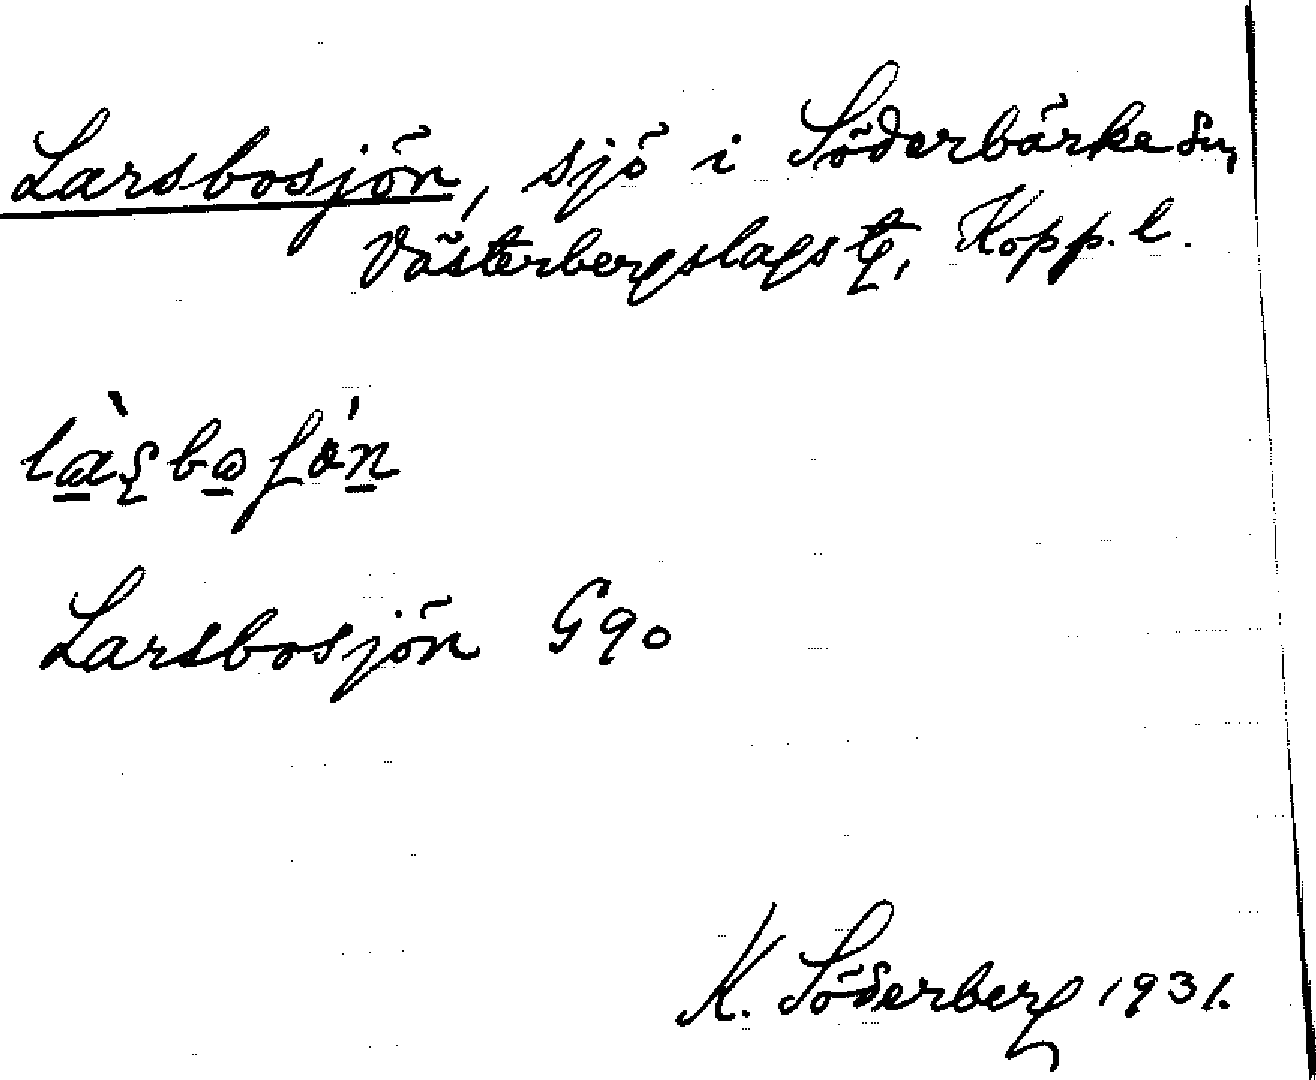 Larsbosjön, sjö i Söderbärke sn,
Västerbergslags tg, Kopp. l.
Larsbosjön G90
K. Söderberg 1931.